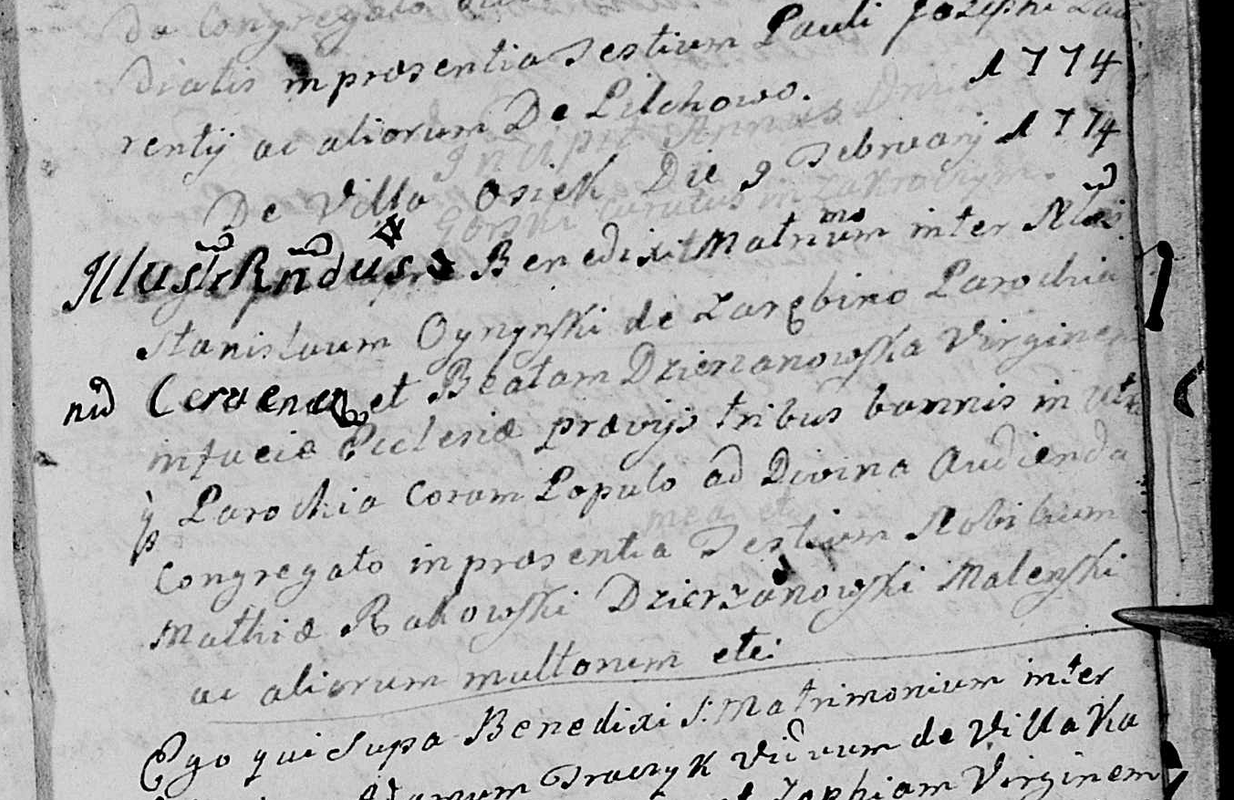 De Congregato
Diatis in praesentia Testium Pauli Josephi Lau
rentij ac aliorum De Pilchowo. 1774
De Villa Osiek Die 9 Februarij 1774
Illustr Rndus Benedixit Matrium mo inter Nles
Stanislaum Oyrzyński de Zarębino Parochia
Cervena et Beatam Dzierzanowska Virginem
in facie Ecclesiæ prævijs tribus bannis in
Parochia Coram Populo ad Divina Audienda
Congregato in præsentia Testium Nobilium
Mathiæ Rakowski Dzierzanowski Maleński
ac aliorum multorum etc:
Ego qui Supa Benedixi S. Matrimonium inter
Adamum Traczyk Viduum de Villa Ka
et Zophiam Virginem